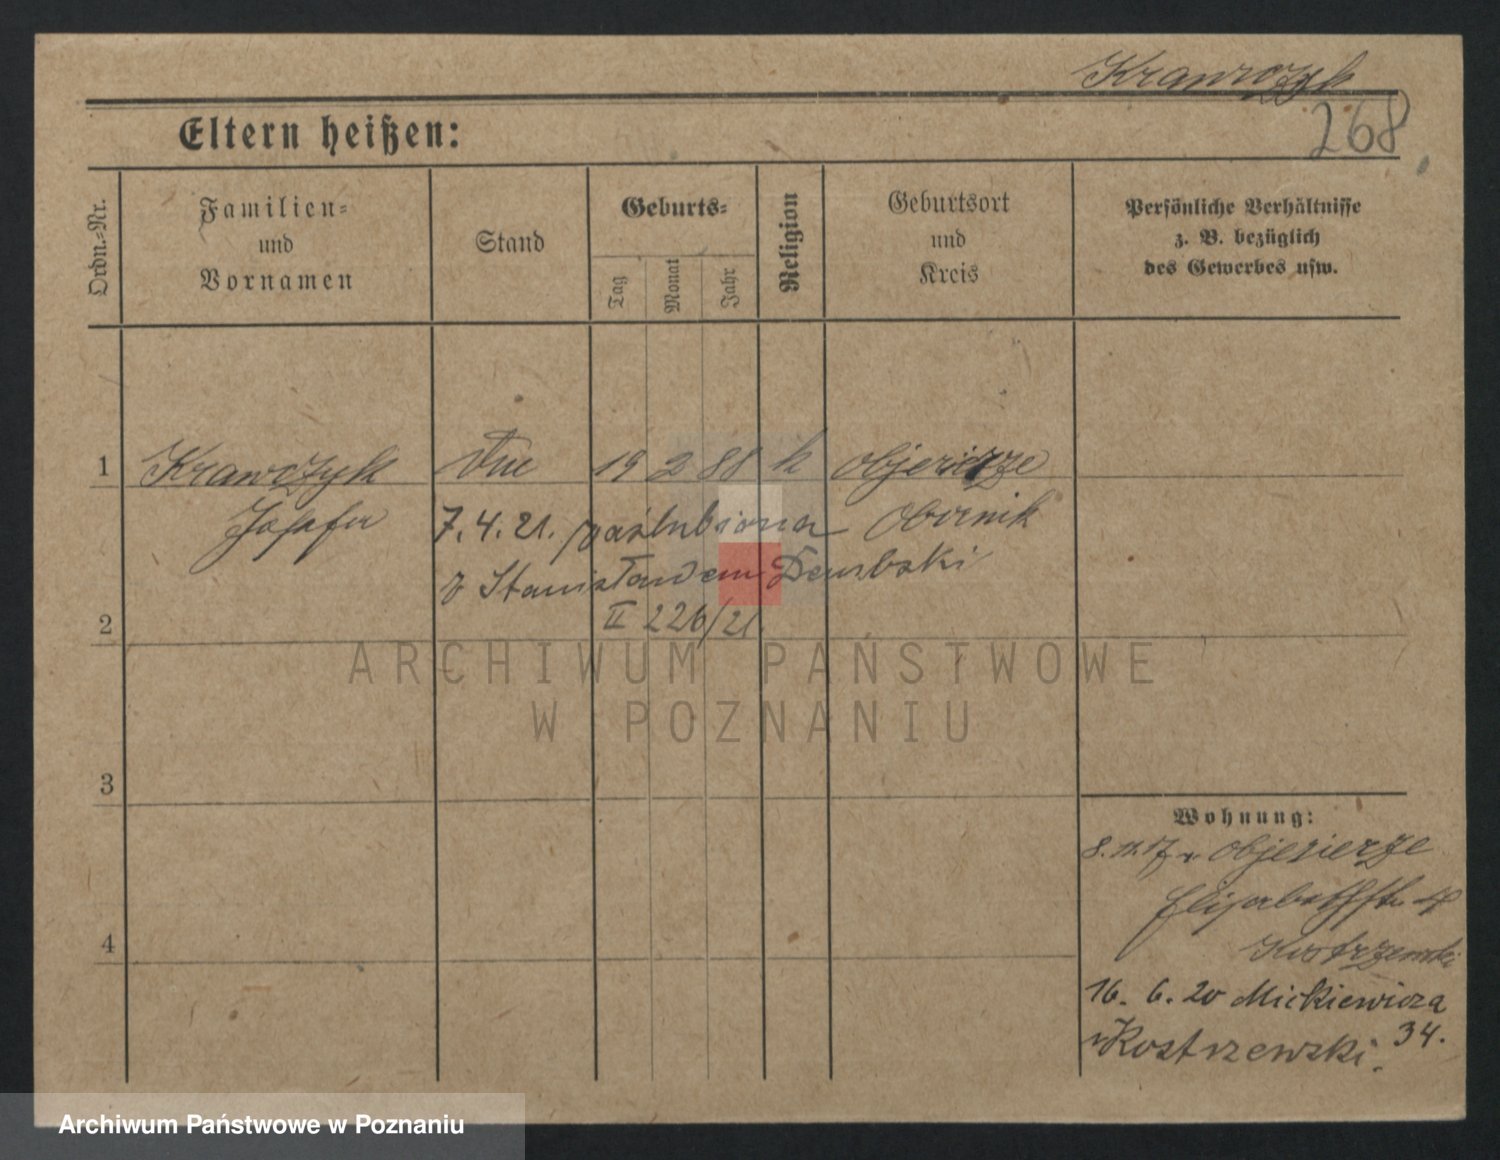 Krawczyk
268
Eltern heißen:
Ordn.-Nr.
Familien-
und
Vornamen
Stand
Geburts-
Tag
Monat
Jahr
Religion
Geburtsort
und
Kreis
Persönliche Verhältnisse
z. B. bezüglich
des Gewerbes usw.
1 Krawczyk 19 2 88 k Objezierze
Josefa 7.4.21. zaślubiona Obornik
z Stanisławem Dembski
2 II 226/21
ARCHIWUM PAŃSTWOWE
W POZNANIU
3
Wohnung:
8.11.17 v. Objezierze
Elisabethstr. 4
4 Kostrzewski
16. 6. 20 Mickiewicza
34.
Kostrzewski.
Archiwum Państwowe w Poznaniu